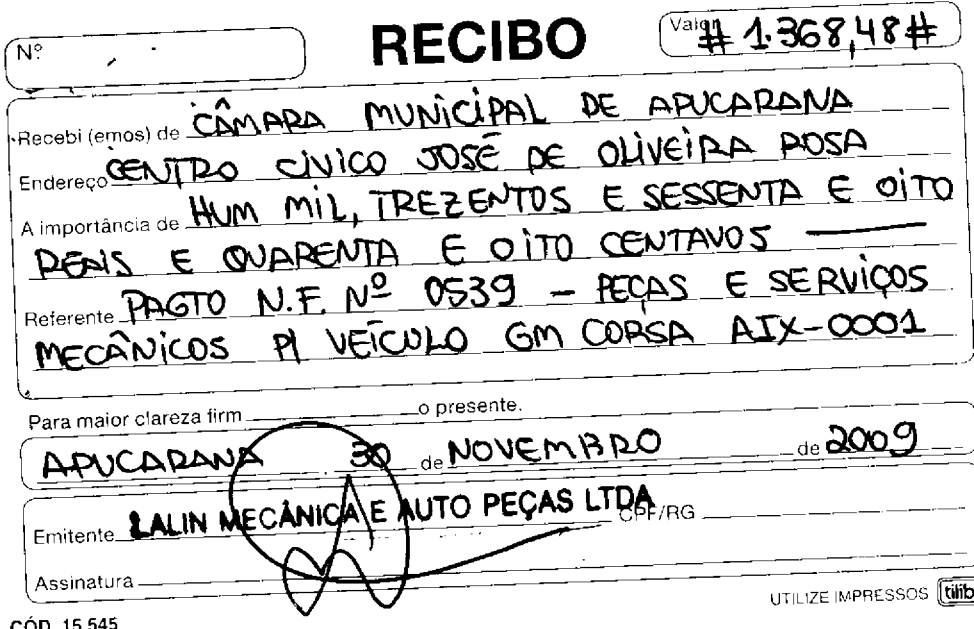 Nº RECIBO Valor # 1.368,48 #
Recebi (emos) de CÂMARA MUNICIPAL DE APUCARANA
Endereço CENTRO CÍVICO JOSÉ DE OLIVEIRA ROSA
A importância de HUM MIL, TREZENTOS E SESSENTA E OITO
REAIS E QUARENTA E OITO CENTAVOS
Referente PAGTO N.F. Nº 0539 - PEÇAS E SERVIÇOS
MECÂNICOS P/ VEÍCULO GM CORSA AIX-0001
Para maior clareza firm o presente.
APUCARANA 30 de NOVEMBRO de 2009
Emitente LALIN MECÂNICA E AUTO PEÇAS LTDA CPF/RG
Assinatura
UTILIZE IMPRESSOS tilib
CÓD. 15.545